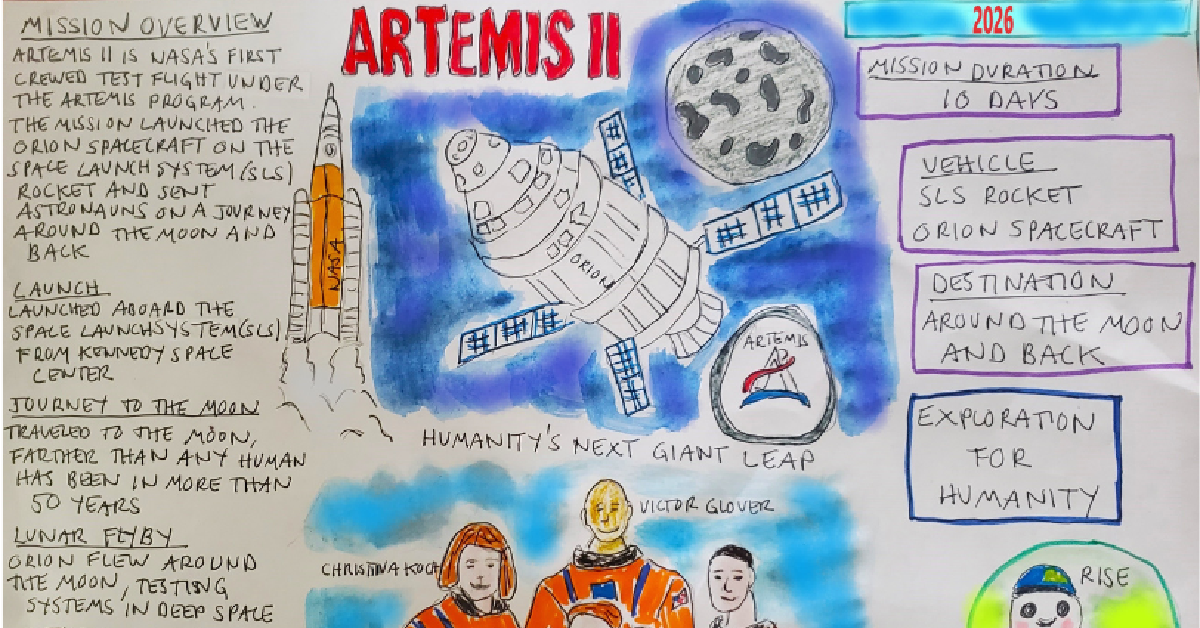 MISSION OVERVIEW
ARTEMIS II IS NASA'S FIRST
CREWED TEST FLIGHT UNDER
THE ARTEMIS PROGRAM.
THE MISSION LAUNCHED THE
ORION SPACECRAFT ON THE
SPACE LAUNCH SYSTEM (SLS)
ROCKET AND SENT
ASTRONAUNS ON A JOURNEY
AROUND THE MOON AND
BACK
LAUNCH
LAUNCHED ABOARD THE
SPACE LAUNCHSYSTEM(SLS)
FROM KENNEDY SPACE
CENTER
JOURNEY TO THE MOON
TRAVELED TO THE MOON,
FARTHER THAN ANY HUMAN
HAS BEEN IN MORE THAN
50 YEARS
LUNAR FLYBY
ORION FLEW AROUND
THE MOON, TESTING
SYSTEMS IN DEEP SPACE
ARTEMIS II
NASA
ORION
ARTEMIS
HUMANITY'S NEXT GIANT LEAP
VICTOR GLOVER
CHRISTINA KOCH
2026
MISSION DURATION
10 DAYS
VEHICLE
SLS ROCKET
ORION SPACECRAFT
DESTINATION
AROUND THE MOON
AND BACK
EXPLORATION
FOR
HUMANITY
RISE